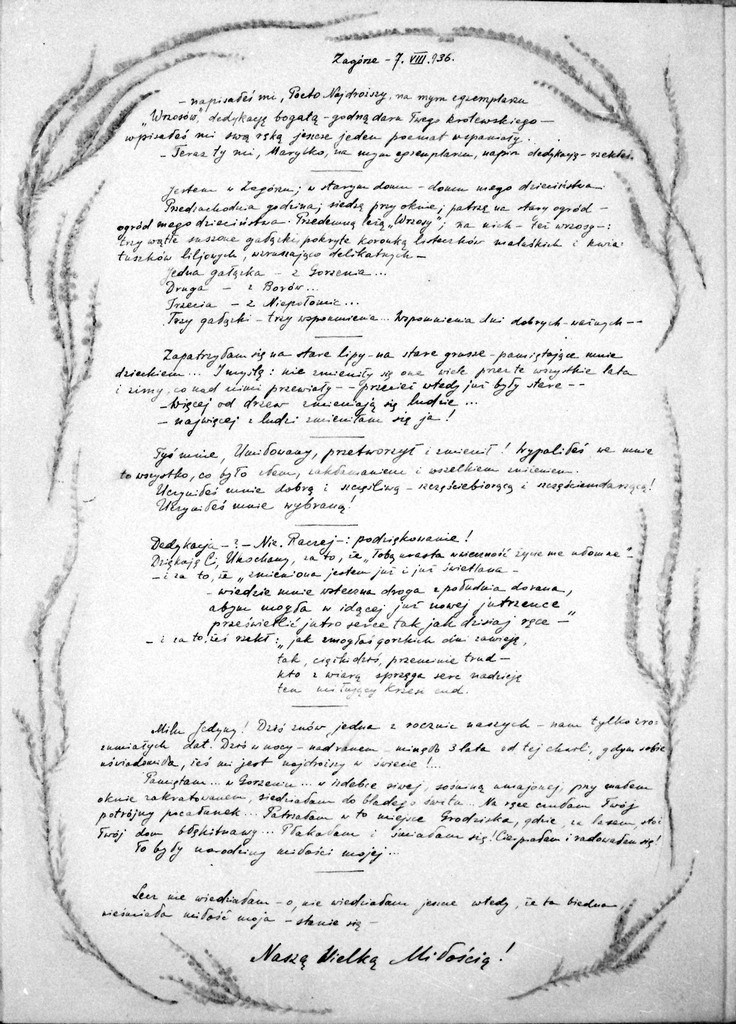 Zagórze – 7. VIII. 936.
– napisałeś mi, Poeto Najdroższy, na mym egzemplarzu
"Wrzosów" dedykację bogatą – godną daru Twego królewskiego –
wpisałeś mi swą ręką jeszcze jeden poemat wspaniały...
– Teraz ty mi, Marylko, na mym egzemplarzu, napisz dedykację – rzekłeś.
Jestem w Zagórzu; w starym domu – domu mego dzieciństwa.
Przedzachodnia godzina; siedzę przy oknie; patrzę na stary ogród –
ogród mego dzieciństwa. Przedemną leżą "Wrzosy"; na nich – też wrzosy –:
trzy wątłe suszone gałązki, pokryte koronką listeczków maleńkich i kwia-
tuszków liljowych, wzruszająco delikatnych –
Jedna gałązka – z Gorzenia...
Druga – z Borów...
Trzecia – z Niepołomic...
Trzy gałązki – trzy wspomnienia... Wspomnienia dni dobrych – ważnych – –
Zapatrzyłam się na stare lipy – na stare grusze – pamiętające mnie
dzieckiem... I myślę: nie zmieniły się one wiele przez te wszystkie lata
i zimy, co nad nimi przewiały – – przecież wtedy już były stare – –
– Więcej od drzew zmieniają się ludzie...
– najwięcej z ludzi zmieniłam się ja!
Tyś mnie, Umiłowany, przetworzył i zmienił! Wypaliłeś we mnie
to wszystko, co było złem, zakłamaniem i wszelkiem
Uczyniłeś mnie dobrą i szczęśliwą – szczęściebiorącą i szczęściemdarzącą!
Uczyniłeś mnie wybraną!
Dedykacja – ? – Nie. Raczej –: podziękowanie!
Dziękuję Ci, Ukochany, za to, że "Tobą urasta w wieczność życie me ułomne"
– i za to, że "zmieniona jestem już i już świetlana –
– wiedzie mnie wsteczna droga z południa do rana,
abym mogła w idącej już nowej jutrzence
prześwietlić jutro serce tak jak dzisiaj ręce – "
– i za to, żeś rzekł: "jak zmogłaś gorzkich dni zawieję,
tak, ciężki dziś, przeminie trud –
kto z wiarą sprzęga serc nadzieję
ten miłujący krzesi cud.
Miły Jedyny! Dziś znów jedna z rocznic naszych – nam tylko zro-
zumiałych dat. Dziś w nocy – nad ranem – minęło 3 lata od tej chwili, gdym sobie
uświadomiła, żeś mi jest najdroższy w świecie!...
Pamiętam... w Gorzeniu... w izdebce siwej, sośniną umajonej, przy małem
oknie zakratowanem, siedziałam do bladego świtu... Na ręce czułam Twój
potrójny pocałunek... Patrzałam w to miejsce Grodziska, gdzie, za lasem, stoi
Twój dom błękitnawy... Płakałam i śmiałam się! Cierpiałam i radowałam się!
To były narodziny miłości mojej...
Lecz nie wiedziałam – o, nie wiedziałam jeszcze wtedy, że ta biedna
nieśmiała miłość moja – stanie się –
Naszą Wielką Miłością!